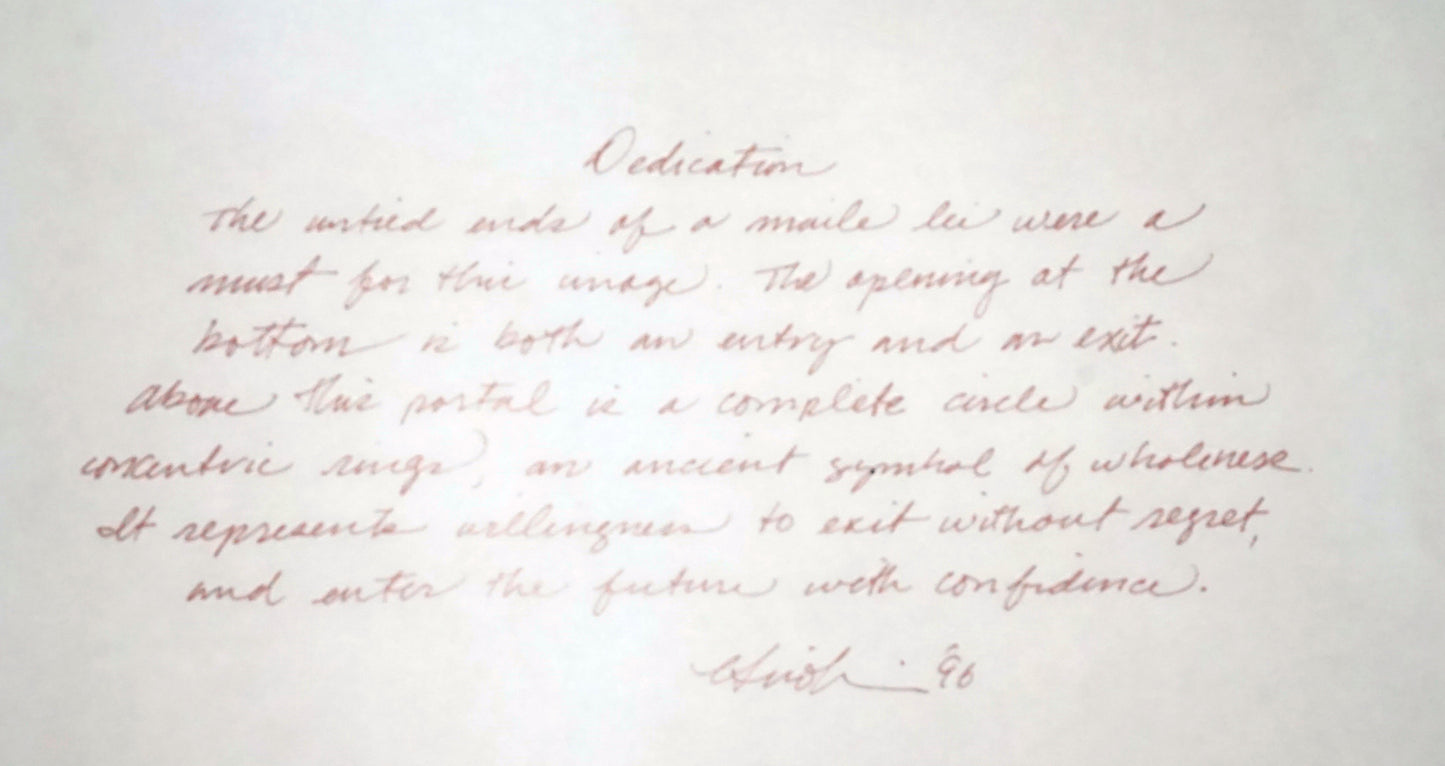 Dedication
The untied ends of a maile lei were a
must for this image. The opening at the
bottom is both an entry and an exit.
Above this portal is a complete circle within
concentric rings, an ancient symbol of wholeness.
It represents willingness to exit without regret,
and enter the future with confidence.
'96